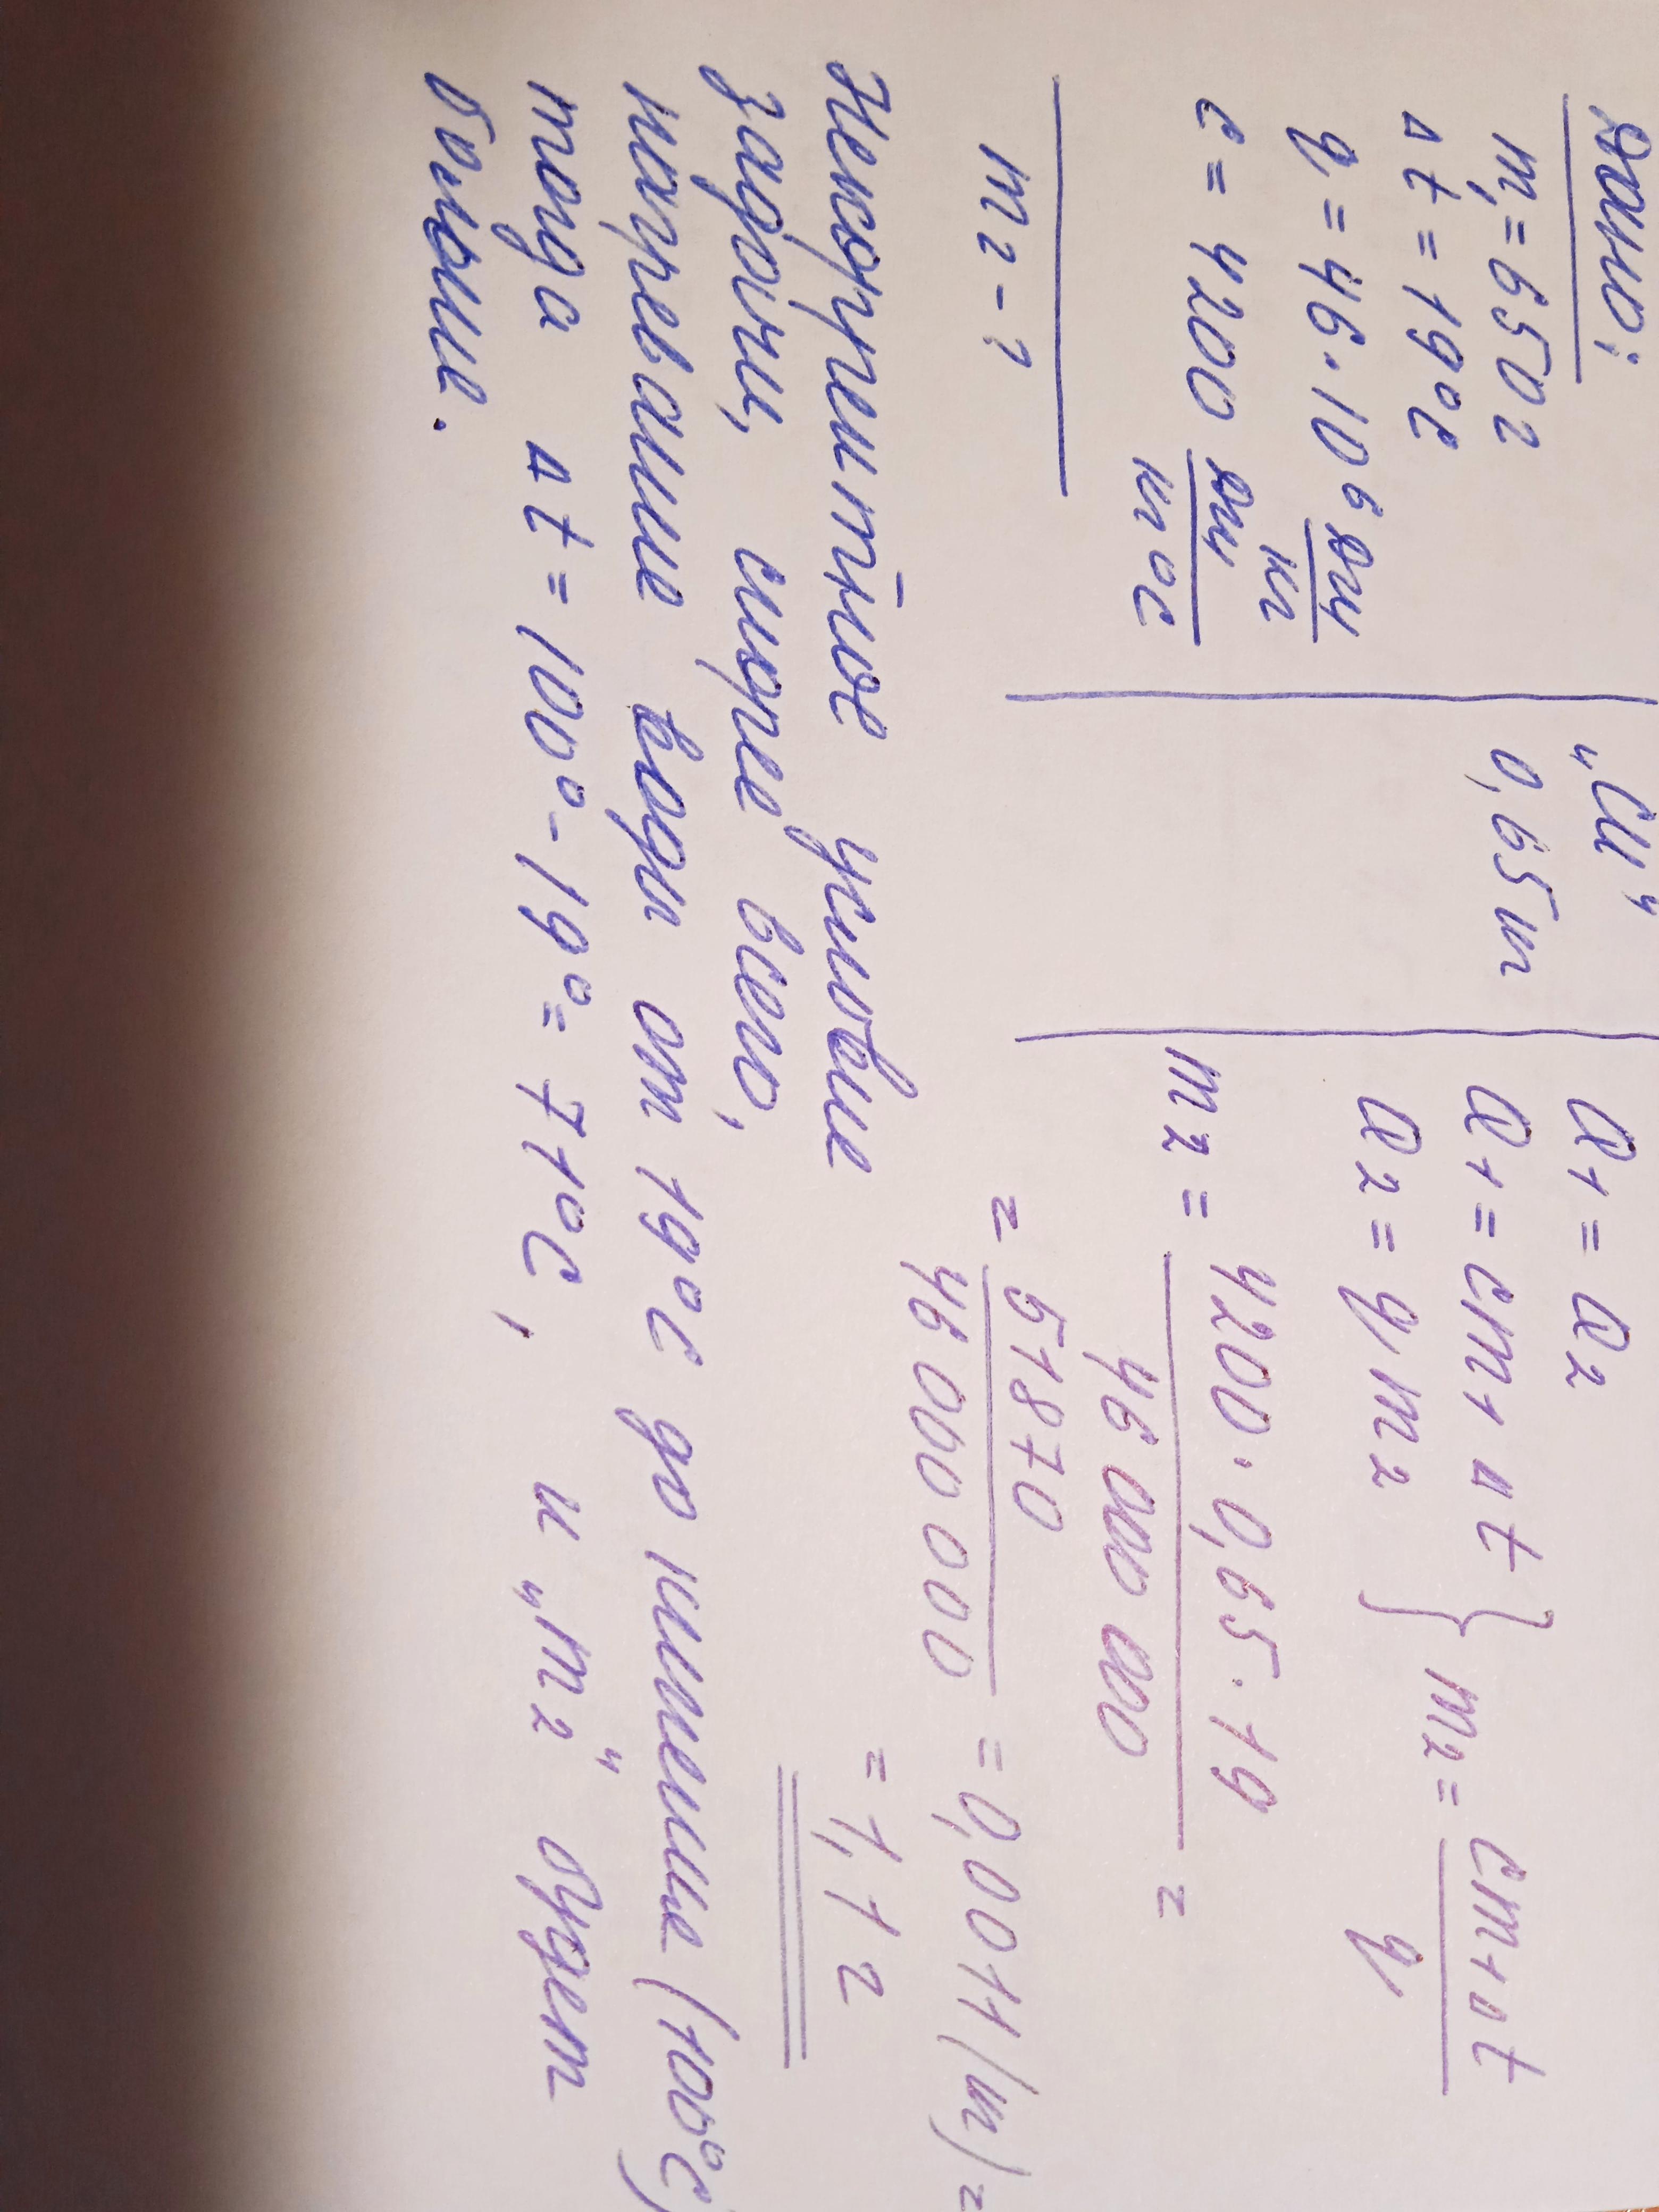 Дано:
m₁ = 650 г
Δt = 19°C
q = 46·10⁶ Дж/кг
c = 4200 Дж/кг°C
m₂ - ?
"СИ"
0,65 кг
Q₁ = Q₂
Q₁ = cm₁Δt
Q₂ = qm₂ } m₂ = cm₁Δt/q
m₂ = 4200·0,65·19/46 000 000 =
= 51870/46 000 000 = 0,0011(кг) =
= 1,1 г
Некорректное условие
задачи, скорее всего,
нагревание воды от 19°C до кипения (100°C)
тогда Δt = 100°-19° = 71°C, и "m₂" будет
больше.